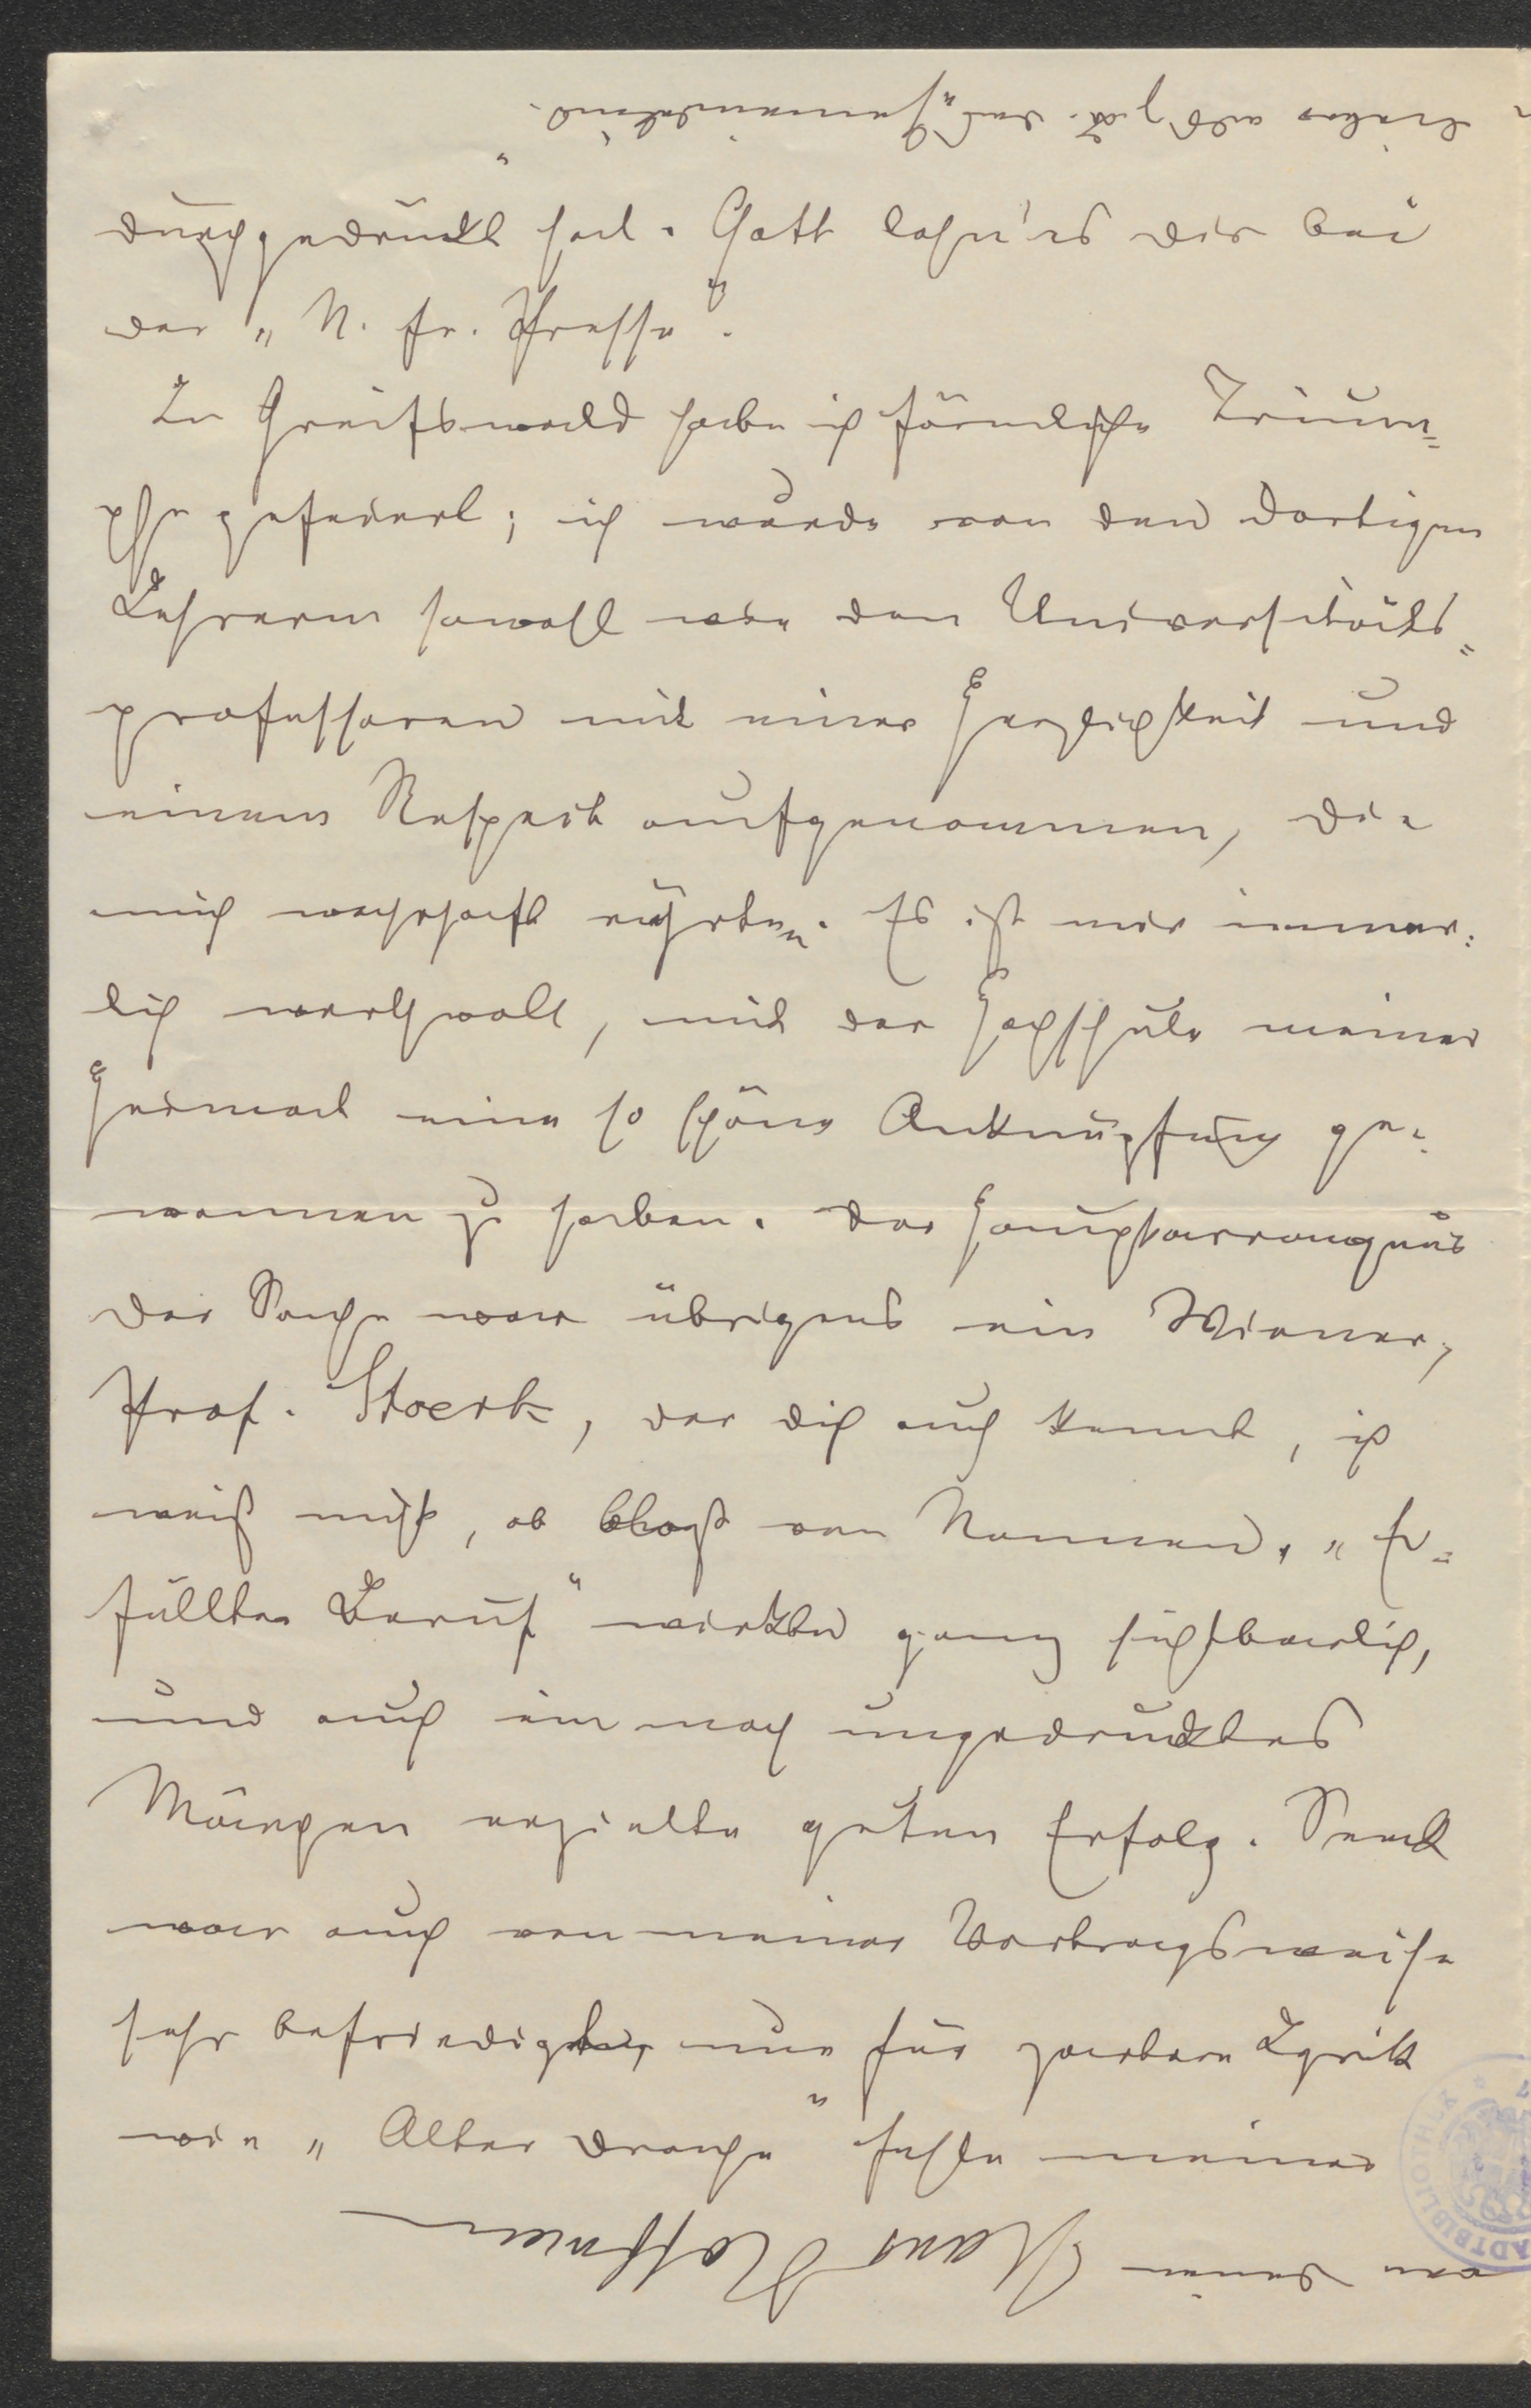 lieber als z. B. das „Gemeindekind".
durchgedruckt hat. Gott lohn's dir bei
der „N. fr. Presse".
In Greifswald habe ich förmliche Trium=
phe gefeiert; ich wurde von den dortigen
Lehrern sowohl wie den Universitäts=
professoren mit einer Herzlichkeit und
einem Respeckt aufgenommen, die
mich wahrhaft rührten. Es ist mir inner=
lich werthvoll, mit der Hochschule meiner
Heimat eine so schöne Anknüpfung ge=
wonnen zu haben. Der Hauptarrangeur
der Sache war übrigens ein Wiener,
Prof. Stoerk, der dich auch kennt, ich
weiß nicht, ob bloß von Namen. „Er=
füllter Beruf" wirkte ganz sichtbarlich,
und auch ein noch ungedrucktes
Märchen erzielte guten Erfolg. Send
war auch von meiner Vortragsweise
sehr befriedigt, nur für zartere Lyrik
wie „Alter Drache" fehle meiner
von deinem Hans Hoffmann